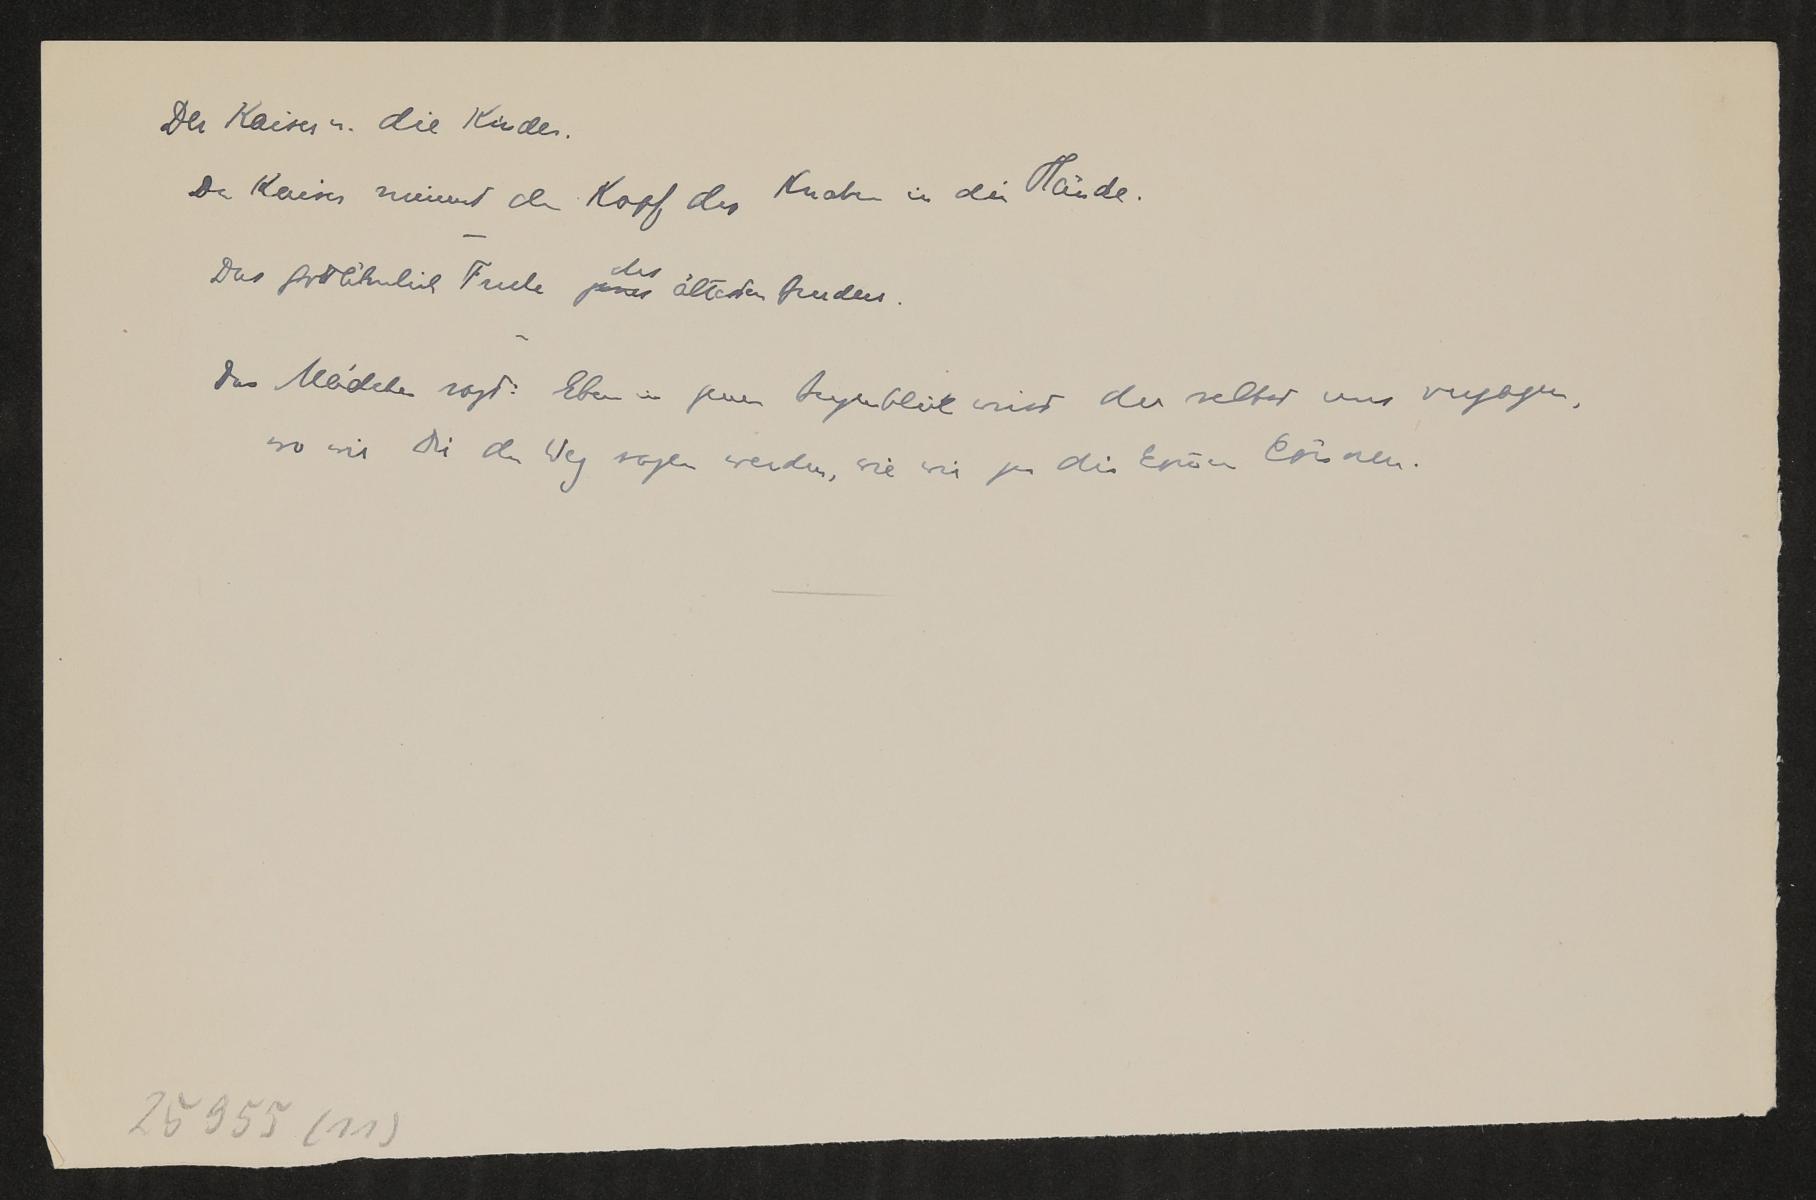 Der Kaiser u. die Kinder.
Der Kaiser nimmt den Kopf des Knaben in die Hände.
–
Das gottähnliche Freche jenes des ältesten Bruders.
–
Das Mädchen sagt: Eben in jenem Augenblick wirst du selbst uns verjagen,
wo wir Dir den Weg sagen werden, wie wir zu dir können.
25955 (11)